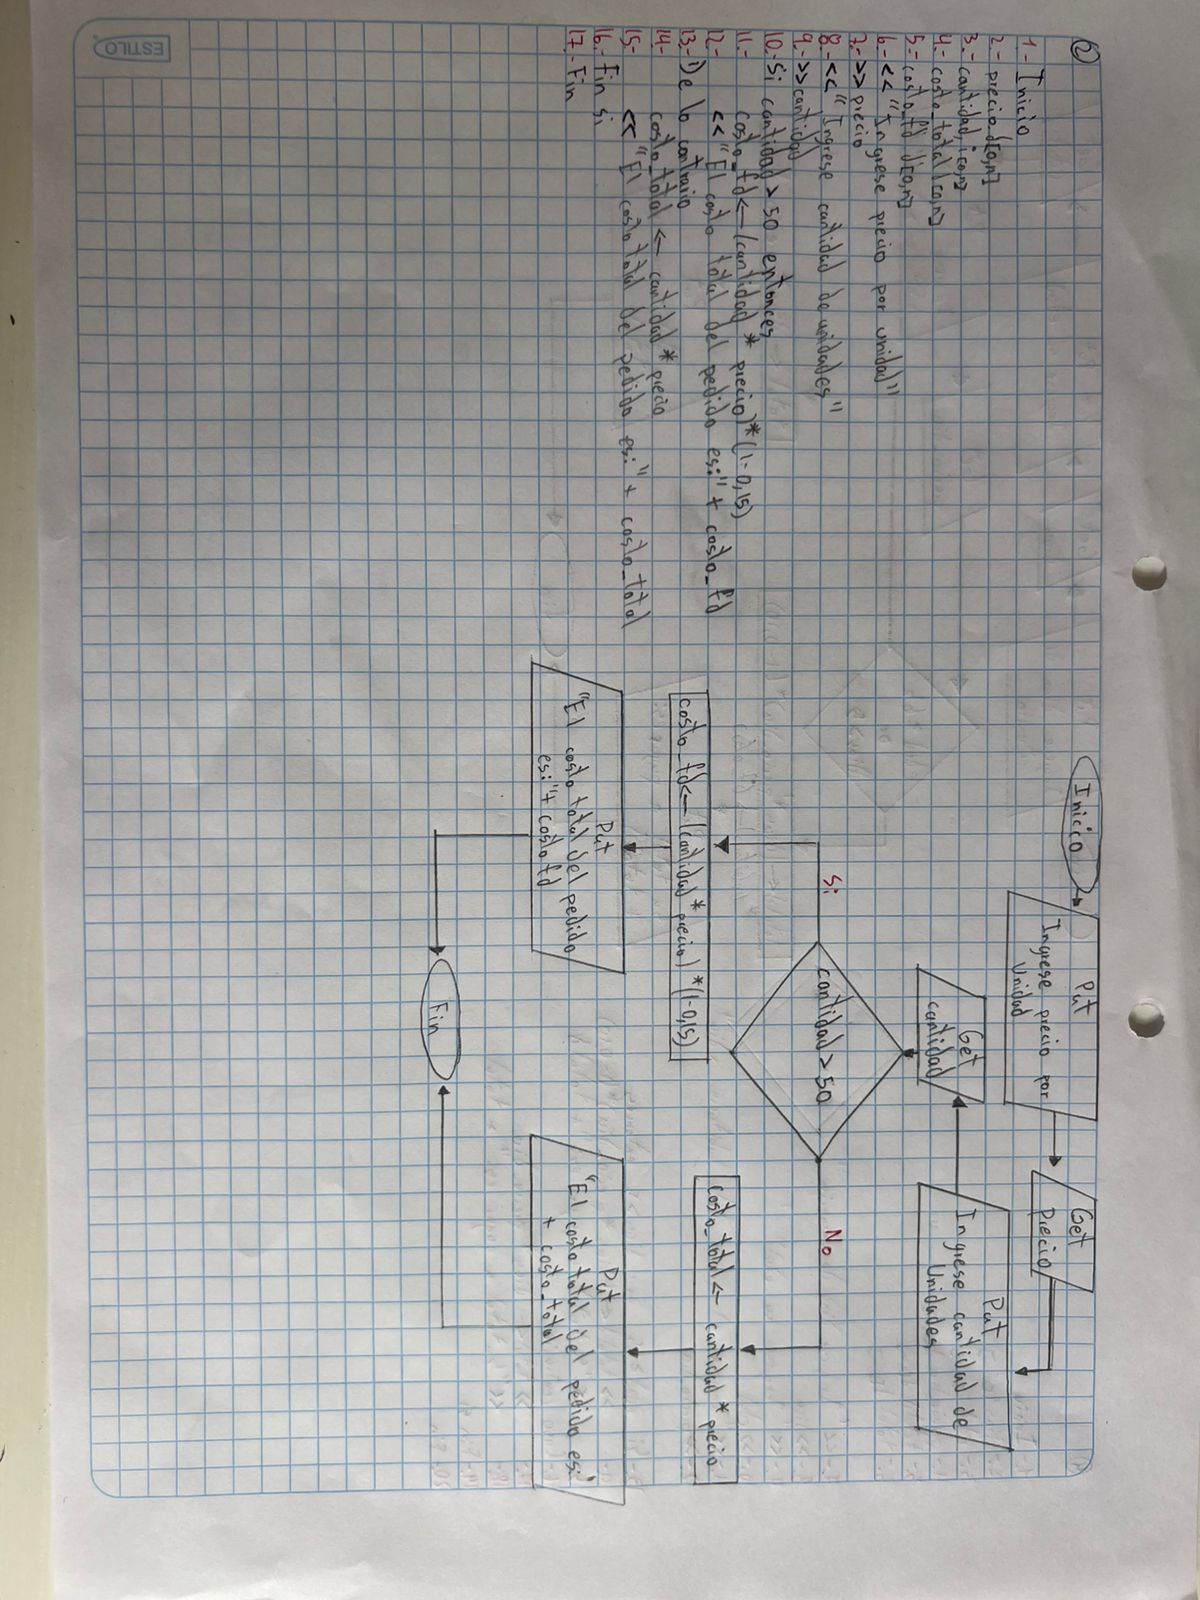 2
1.- Inicio
2.- precio d[0,n]
3.- cantidad, i[0,n]
4.- costo_total d[0,n]
5.- costo_fd d[0,n]
6.- << "Ingrese precio por unidad"
7.- >> precio
8.- << "Ingrese cantidad de unidades"
9.- >> cantidad
10.- Si cantidad > 50 entonces
11.- costo_fd ← (cantidad * precio) * (1-0,15)
12.- << "El costo total del pedido es:" + costo_fd
13.- De lo contrario
14.- costo_total ← cantidad * precio
15.- << "El costo total del pedido es:" + costo_total
16.- Fin si
17.- Fin
Inicio
Put
Ingrese precio por
Unidad
Get
Precio
Put
Ingrese cantidad de
Unidades
Get
cantidad
cantidad > 50
Si
No
costo_fd ← (cantidad * precio) * (1-0,15)
costo_total ← cantidad * precio
Put
"El costo total del pedido
es:" + costo fd
Put
"El costo total del pedido es:"
+ costo_total
Fin
ESTILO